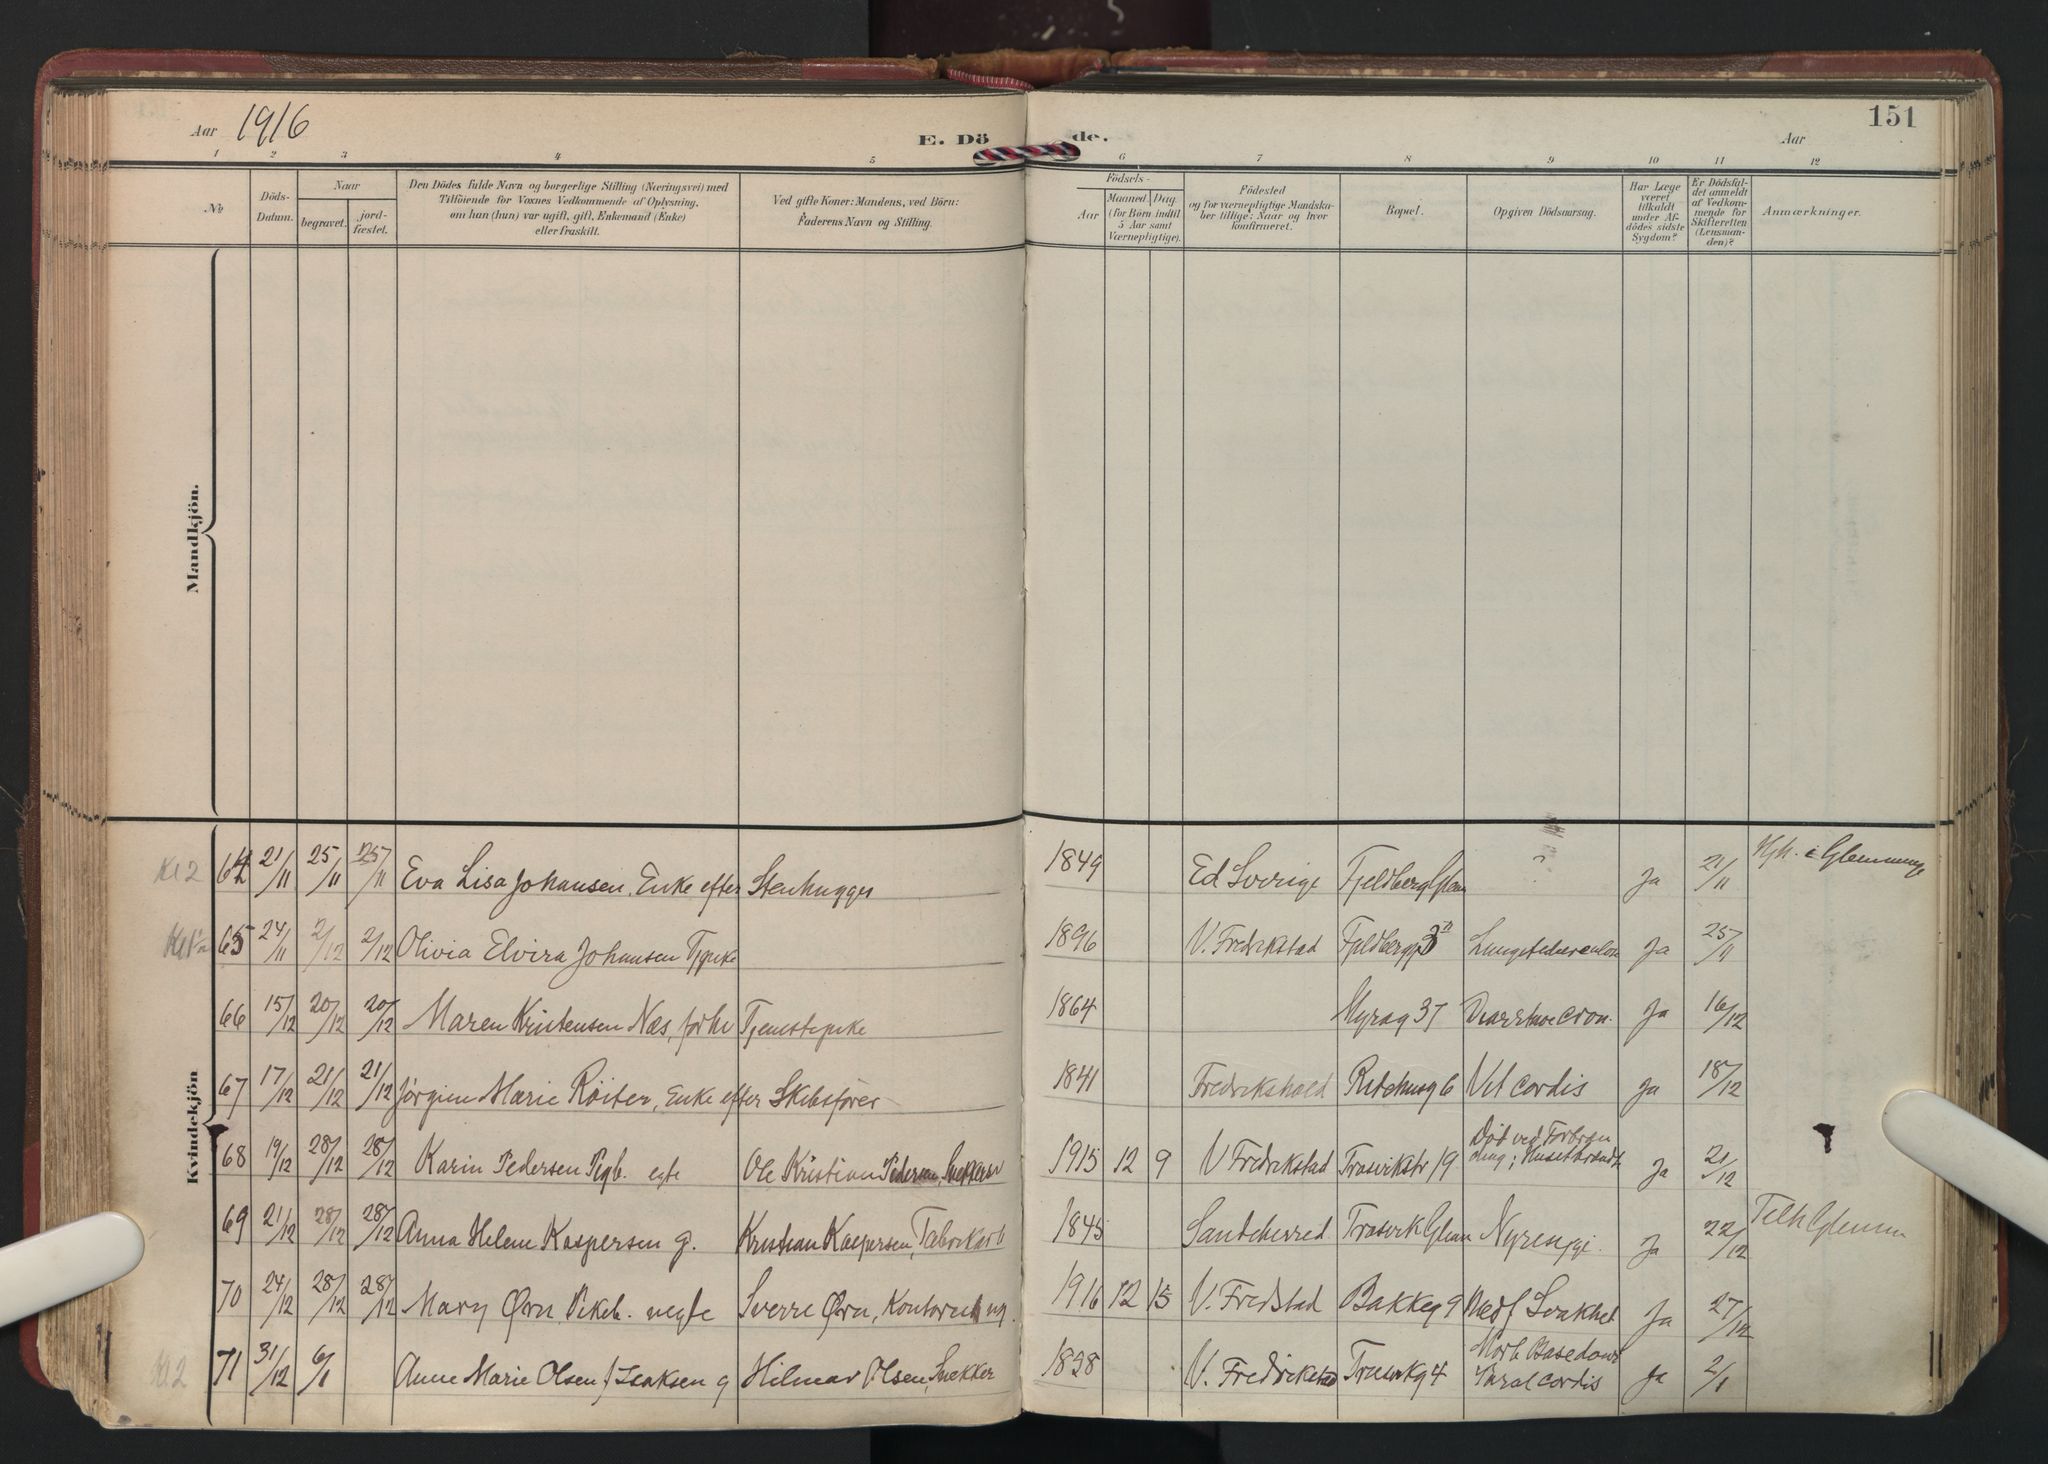 Aar 1916
E. Dö
de.
Aar
151
1 2 3 4 5 6 7 8 9 10 11 12
No
Döds-
Datum.
Naar
begravet.
jord-
fæstet.
Den Dödes fulde Navn og borgerlige Stilling (Næringsvei) med
Tilföiende for Voxnes Vedkommende af Oplysning,
om han (hun) var ugift, gift, Enkemand (Enke)
eller fraskilt.
Ved gifte Koner: Mandens, ved Börn:
Faderens Navn og Stilling.
Födsels-
Aar
Maaned. Dag.
(for Börn indtil
5 Aar samt
Værnepligtige).
Födested
og for værnepligtige Mandska-
ber tillige: Naar og hvor
konfirmeret.
Bopæl.
Opgiven Dödsaarsag.
Har Læge
været
tilkaldt
under Af-
dödes sidste
Sygdom?
Er Dödsfal-
det anmeldt
af Vedkom-
mende for
Skifteretten
(Lensman-
den)?
Anmærkninger.
Mandkjön.
Kvindekjön
Kl 2 64 21/11 25/11 25/11 Eva Lisa Johansen, Enke efter Stenhugger 1849 Ed Sverige Fjeldberg Glem ? Ja 21/11 i Glemminge
65 24/11 2/12 2/12 Olivia Elvira Johansen Tjpike 1896 V. Fredrikstad Ja 25/11
66 15/12 20/12 20/12 Maren Kristensen Næs, forhv Tjenestepike 1864 Myrag 37 Ja 16/12
67 17/12 21/12 21/12 Jørgine Marie Röiter, Enke efter Skibsfører 1841 Fredrikshald Vit cordis Ja 18/12
68 19/12 28/12 28/12 Karin Pedersen Pigb. egte Ole Kristian Pedersen, Snekker 1915 12 9 V Fredrikstad Trosvikstr 19 Död ved Forbræn
ding; Husetbrændt Ja 21/12
69 21/12 28/12 28/12 Anna Helene Kaspersen g. Kristian Kaspersen, Fabrikarb 1845 Trosvik Glem Ja 22/12
70 24/12 28/12 28/12 Mary Ørn, Pikeb. uegte Sverre Ørn, Kontorist ug. 1916 12 15 V. Fredstad Bakkeg 9 Medf Svakhet Ja 27/12
Kl 2 71 31/12 6/1 Anne Marie Olsen f Isaksen g Hilmar Olsen, Snekker V. Fredrikstad Trosvikg 4 Morb Basedowi
cordis Ja 2/1